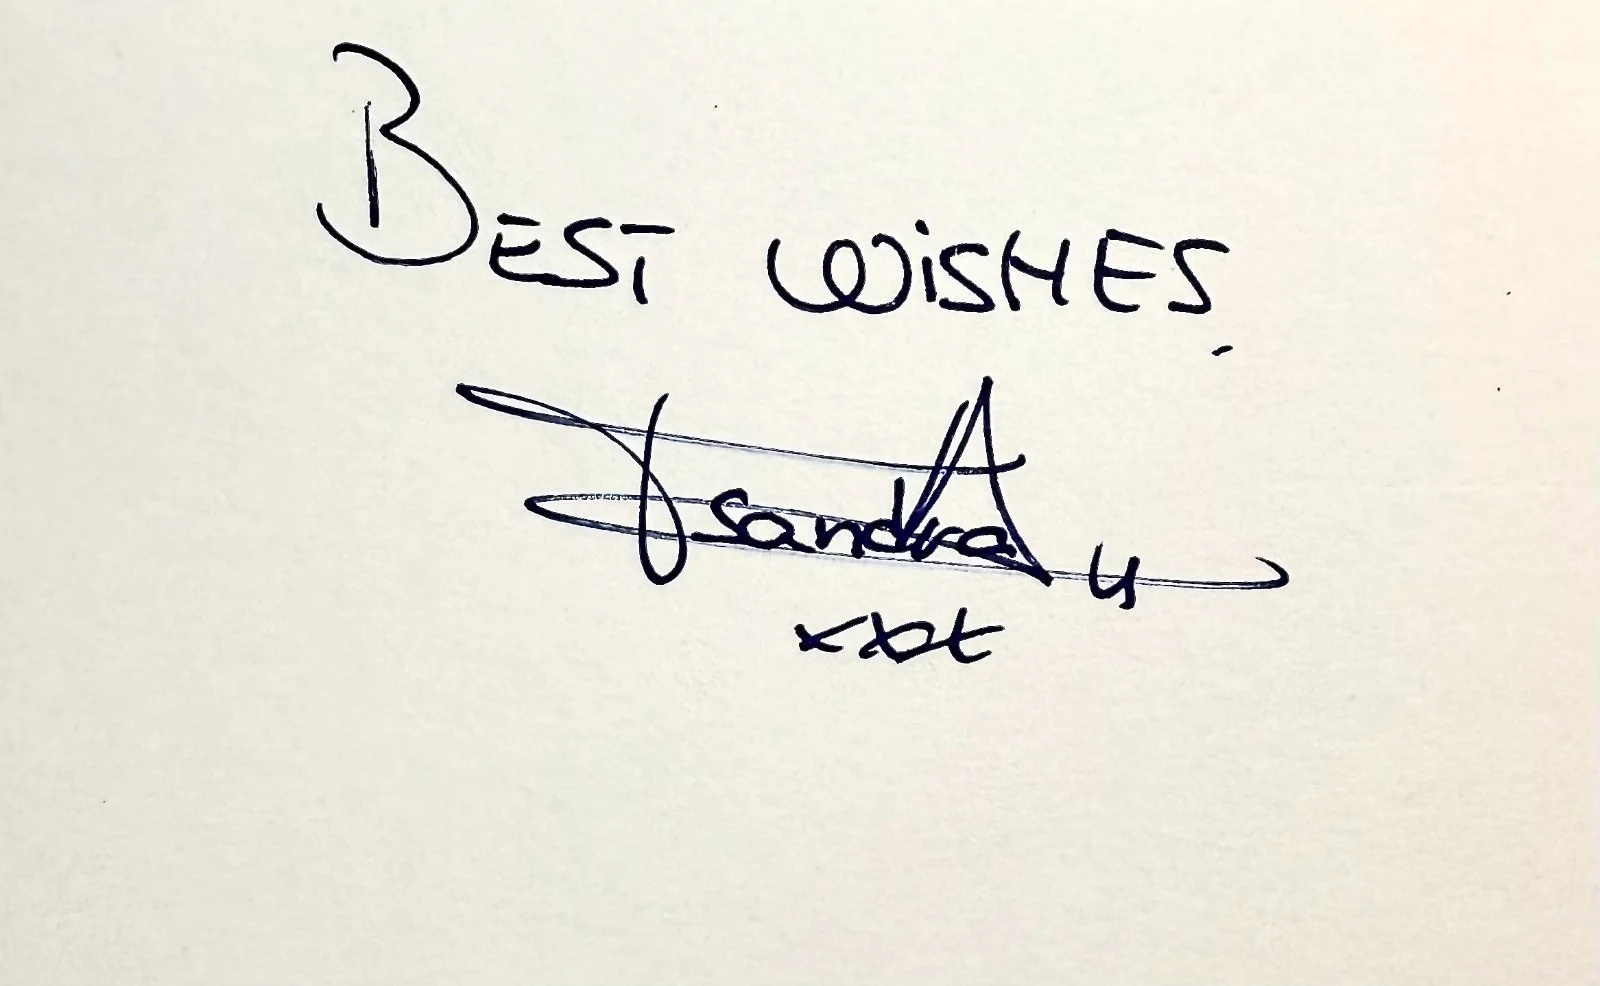 BEST WiSHES
Sandra
xxx